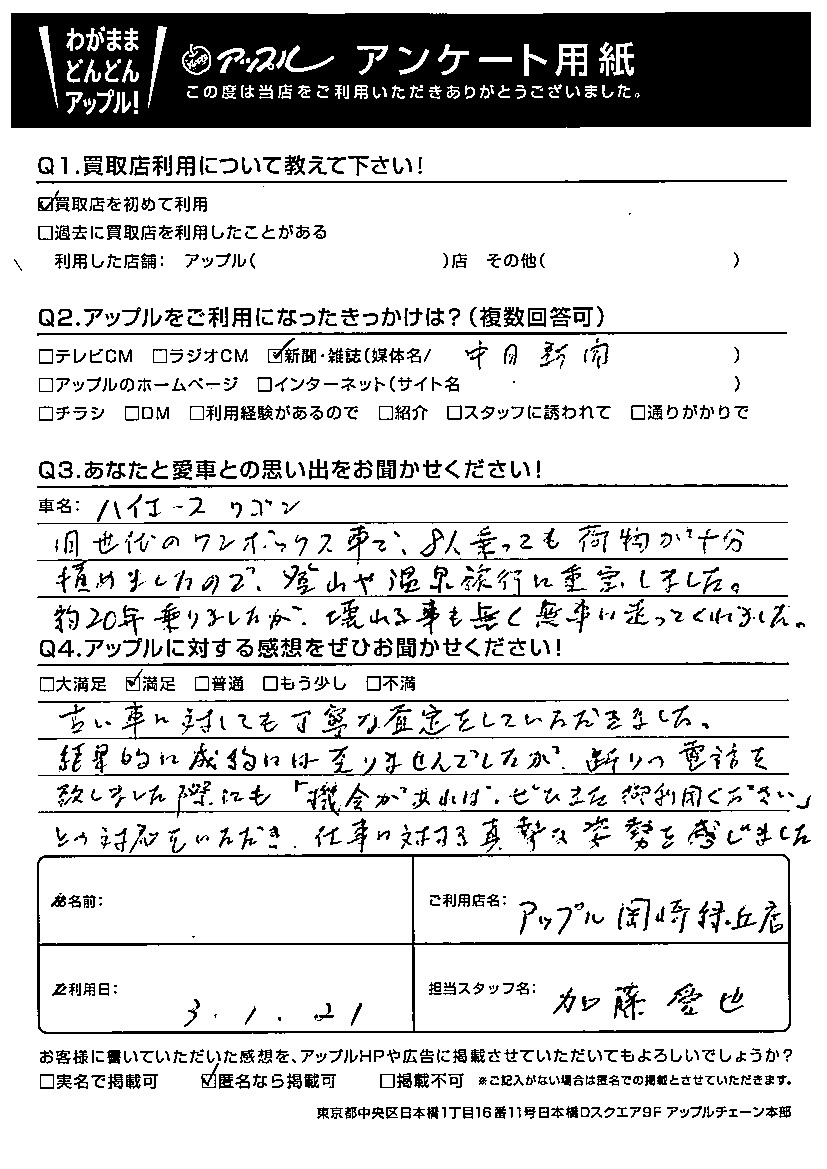 わがまま
どんどん
アップル!
アップル アンケート用紙
この度は当店をご利用いただきありがとうございました。
Q1.買取店利用について教えて下さい!
☑買取店を初めて利用
□過去に買取店を利用したことがある
利用した店舗: アップル( )店 その他( )
Q2.アップルをご利用になったきっかけは?(複数回答可)
□テレビCM □ラジオCM ☑新聞・雑誌(媒体名/ 中日新聞 )
□アップルのホームページ □インターネット(サイト名 )
□チラシ □DM □利用経験があるので □紹介 □スタッフに誘われて □通りがかりで
Q3.あなたと愛車との思い出をお聞かせください!
車名: ハイエースワゴン
旧世代のワンボックス車で、8人乗っても荷物が十分
積めましたので、登山や温泉旅行に重宝しました。
約20年乗りましたが、壊れる事も無く無事に走ってくれました。
Q4.アップルに対する感想をぜひお聞かせください!
□大満足 ☑満足 □普通 □もう少し □不満
古い車に対しても丁寧な査定をしていただきました。
結果的に成約には至りませんでしたが、断りの電話を
致しました際にも「機会があれば、ぜひまた御利用ください」
との対応をいただき、仕事に対する真摯な姿勢を感じました
お名前:
ご利用店名: アップル岡崎緑丘店
ご利用日: 3.1.21
担当スタッフ名: 加藤愛也
お客様に書いていただいた感想を、アップルHPや広告に掲載させていただいてもよろしいでしょうか?
□実名で掲載可 ☑匿名なら掲載可 □掲載不可 ※ご記入がない場合は匿名での掲載とさせていただきます。
東京都中央区日本橋1丁目16番11号日本橋Dスクエア9F アップルチェーン本部